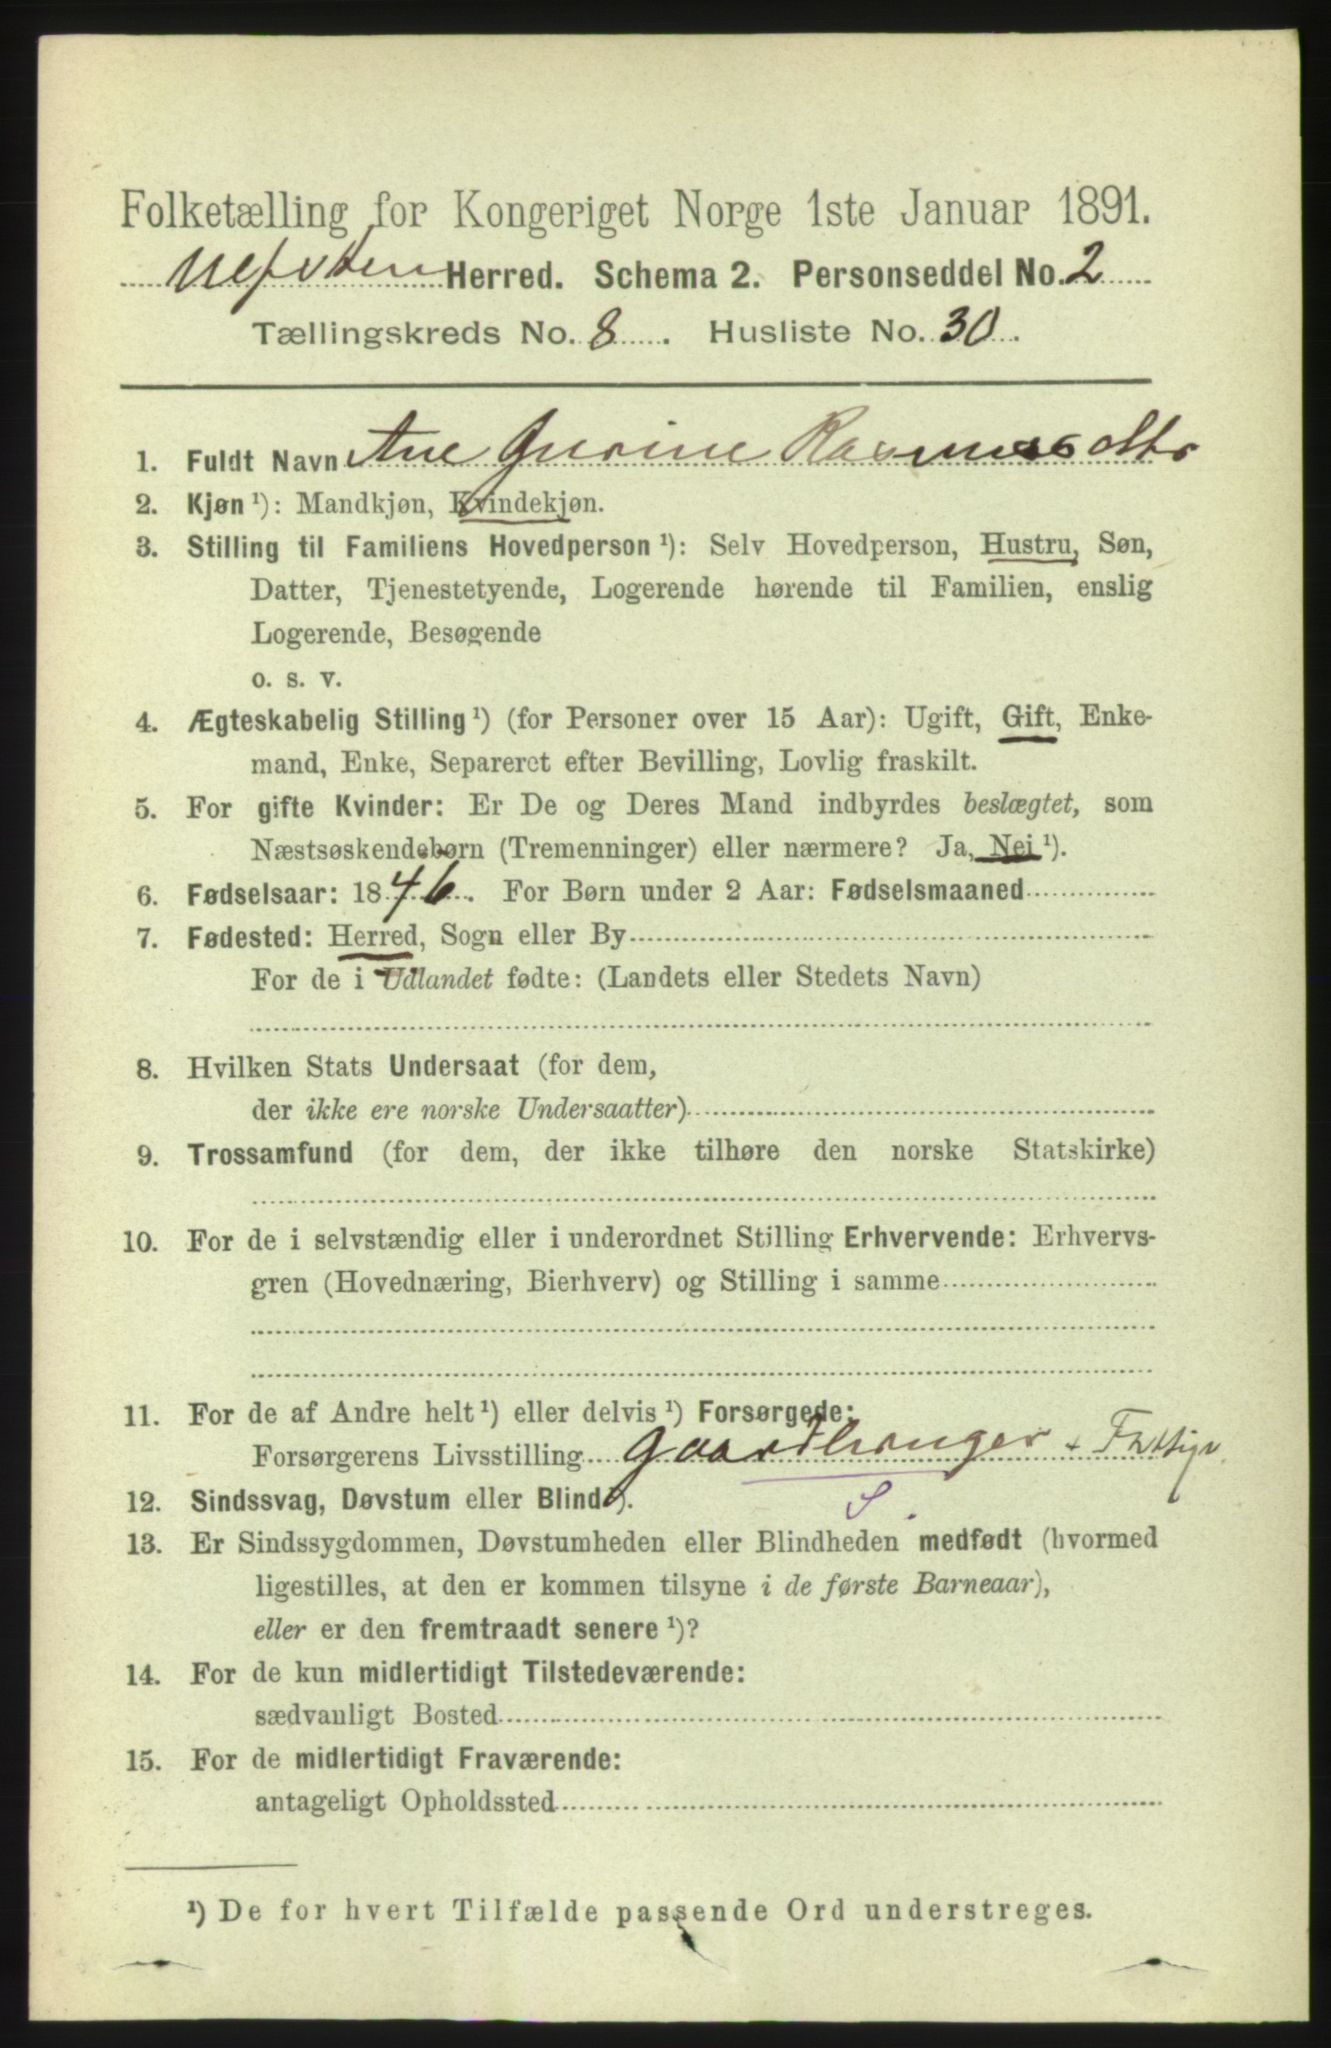 Folketælling for Kongeriget Norge 1ste Januar 1891.
Herred. Schema 2. Personseddel No. 2
Tællingskreds No. 8. Husliste No. 30.
1. Fuldt Navn Ane Gurine Rasmusdtr
2. Kjøn ¹): Mandkjøn, Kvindekjøn.
3. Stilling til Familiens Hovedperson ¹): Selv Hovedperson, Hustru, Søn,
Datter, Tjenestetyende, Logerende hørende til Familien, enslig
Logerende, Besøgende
o. s. v.
4. Ægteskabelig Stilling ¹) (for Personer over 15 Aar): Ugift, Gift, Enke-
mand, Enke, Separeret efter Bevilling, Lovlig fraskilt.
5. For gifte Kvinder: Er De og Deres Mand indbyrdes beslægtet, som
Næstsøskendebørn (Tremenninger) eller nærmere? Ja, Nei ¹).
6. Fødselsaar: 1846. For Børn under 2 Aar: Fødselsmaaned
7. Fødested: Herred, Sogn eller By
For de i Udlandet fødte: (Landets eller Stedets Navn)
8. Hvilken Stats Undersaat (for dem,
der ikke ere norske Undersaatter)
9. Trossamfund (for dem, der ikke tilhøre den norske Statskirke)
10. For de i selvstændig eller i underordnet Stilling Erhvervende: Erhvervs-
gren (Hovednæring, Bierhverv) og Stilling i samme
11. For de af Andre helt ¹) eller delvis ¹) Forsørgede:
Forsørgerens Livsstilling Gaardbruger +
S.
12. Sindssvag, Døvstum eller Blind ¹).
13. Er Sindssygdommen, Døvstumheden eller Blindheden medfødt (hvormed
ligestilles, at den er kommen tilsyne i de første Barneaar),
eller er den fremtraadt senere ¹)?
14. For de kun midlertidigt Tilstedeværende:
sædvanligt Bosted
15. For de midlertidigt Fraværende:
antageligt Opholdssted
¹) De for hvert Tilfælde passende Ord understreges.